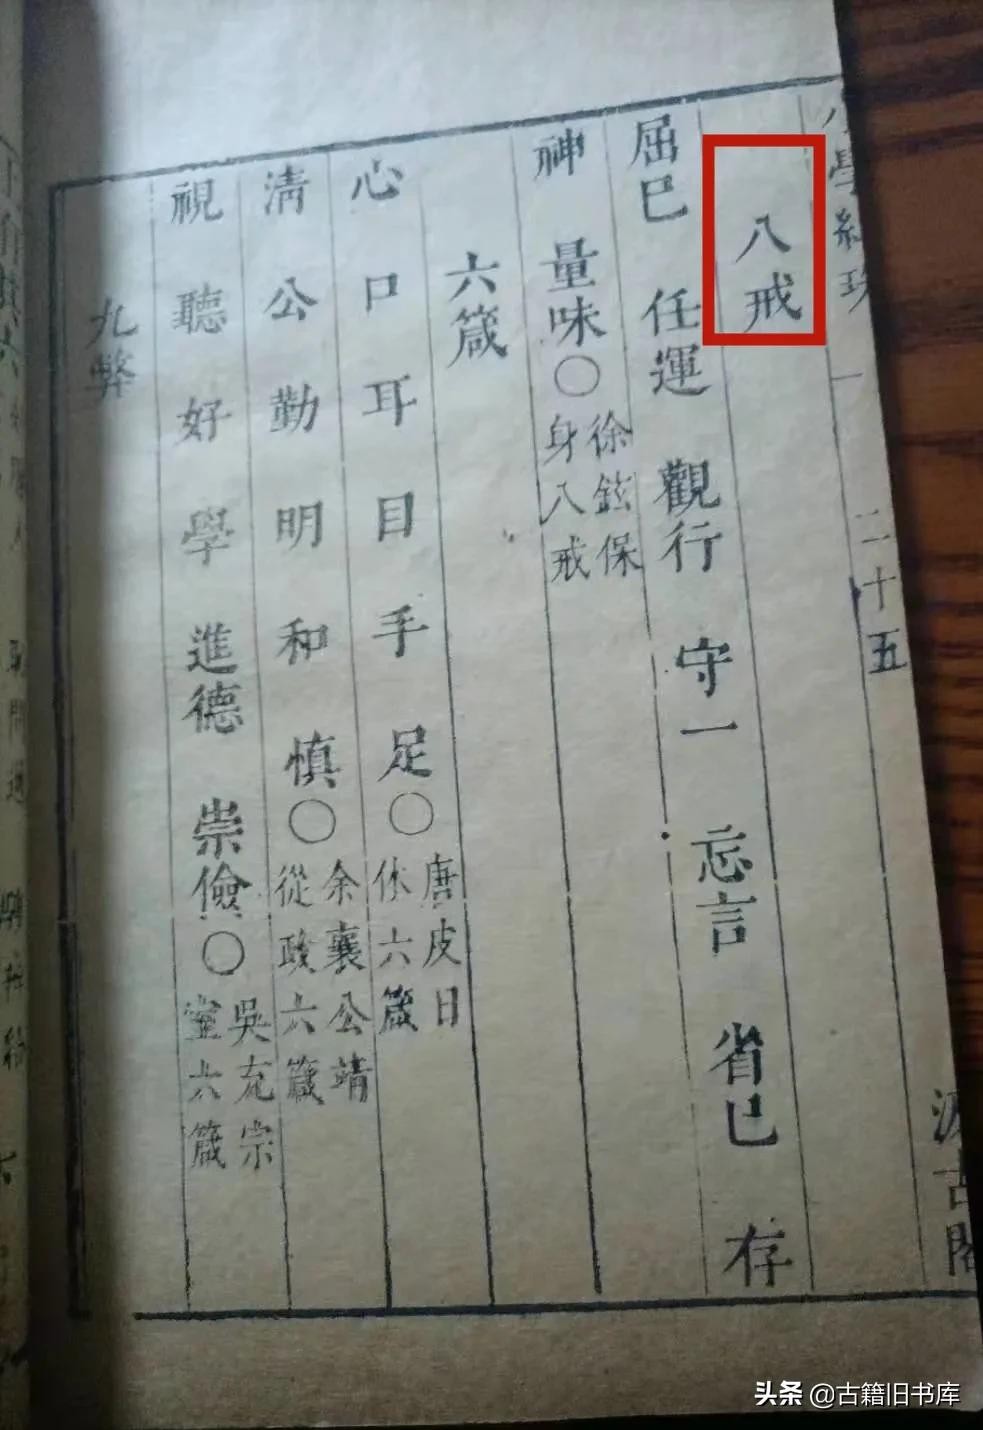 小學紺珠 一 二十五 汲古閣
八戒
屈已 任運 觀行 守一 忘言 省已 存
神 量味○徐鉉保身八戒
六箴
心口耳目手足○唐皮日休六箴
清公勤明和慎○余襄公靖從政六箴
視聽好學進德 崇儉○吳充宗室六箴
九弊
头条 @古籍旧书库